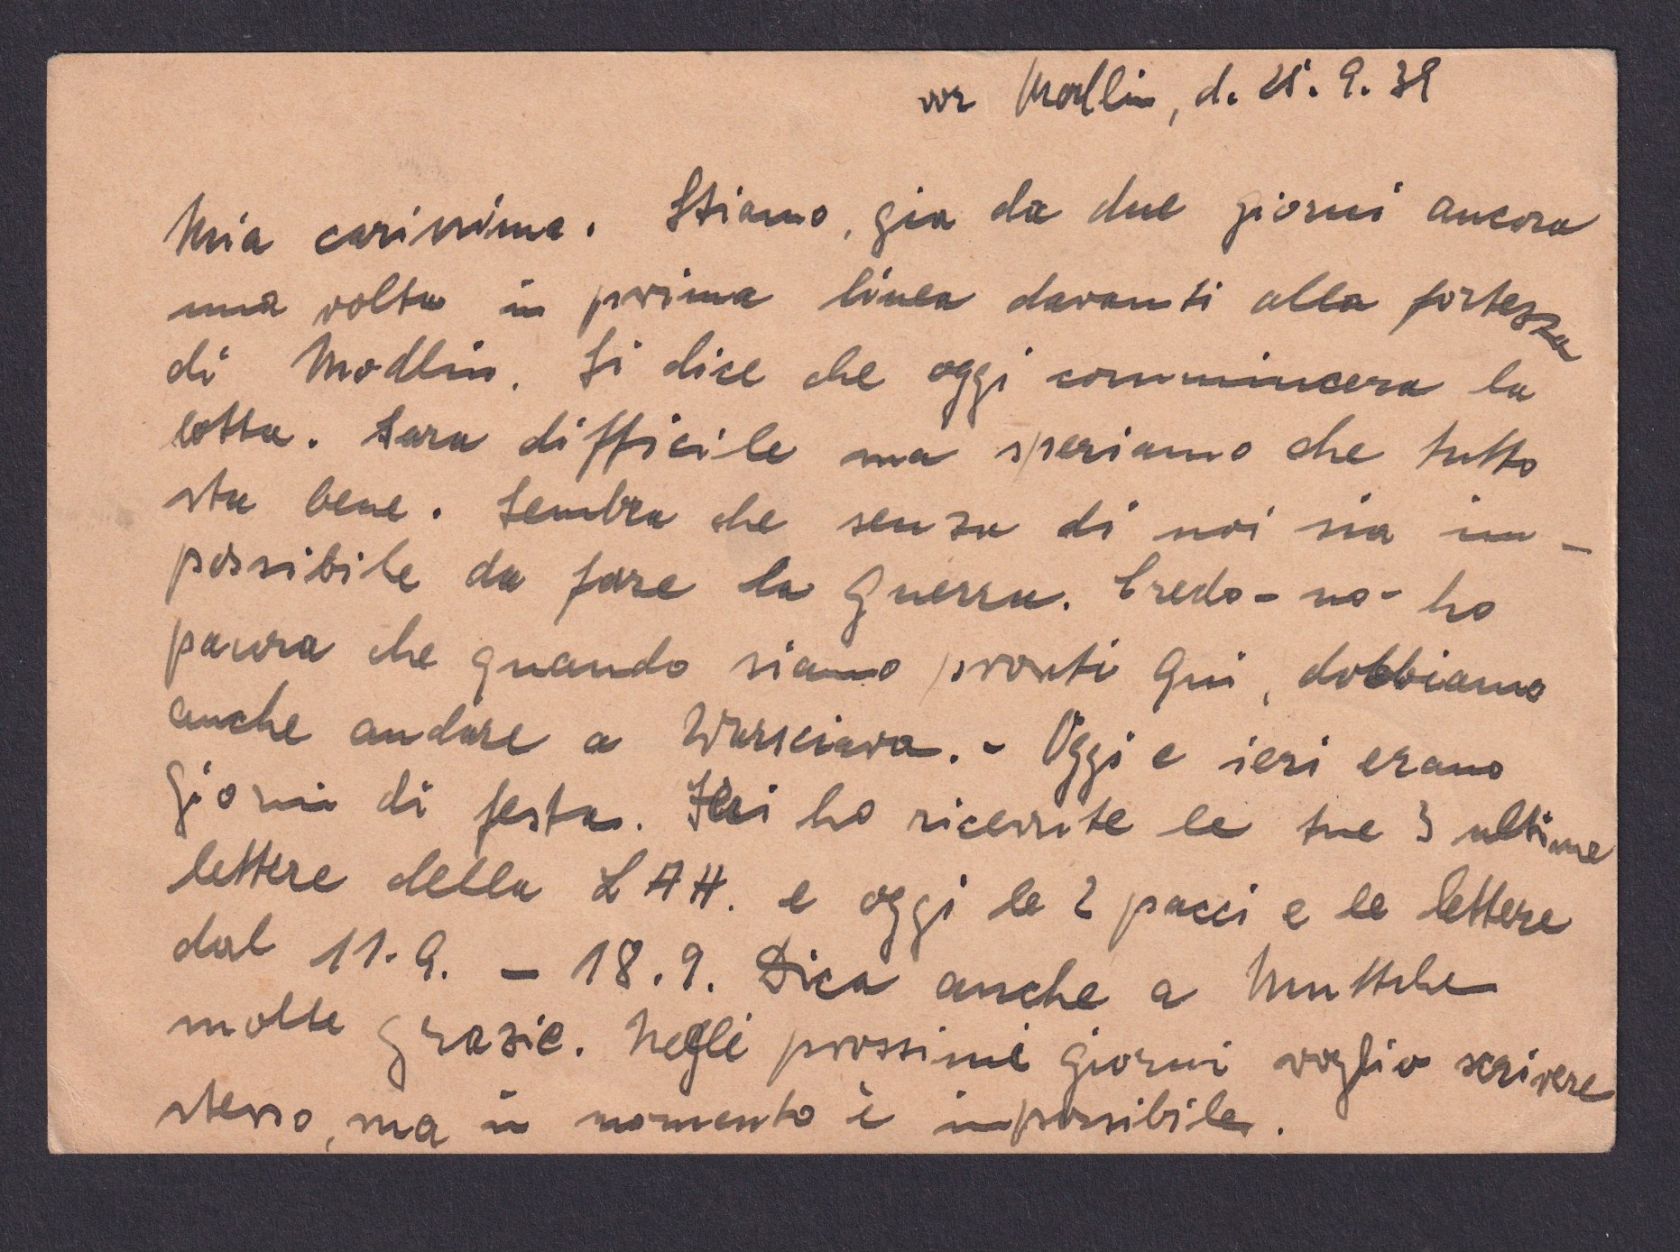 vor Modlin, d. 25. 9. 39
Mia carissima. Stiamo, gia da due giorni ancora
una volta in prima linea davanti alla fortezza
di Modlin. Si dice che oggi commincera la
lotta. Sara difficile ma speriamo che tutto
sta bene. Sembra che senza di noi sia im-
possibile da fare la guerra. Credo - no - ho
paura che quando siamo pronti qui, dobbiamo
anche andare a Warsciava. - Oggi e ieri erano
giorni di festa. Ieri ho ricevute le tue 3 ultime
lettere della LAH. e oggi le 2 pacci e le lettere
dal 11. 9. - 18. 9. Dica anche a Muttche
molte grazie. Negli prossimi giorni voglio scrivere
stesso, ma in momento è impossibile.